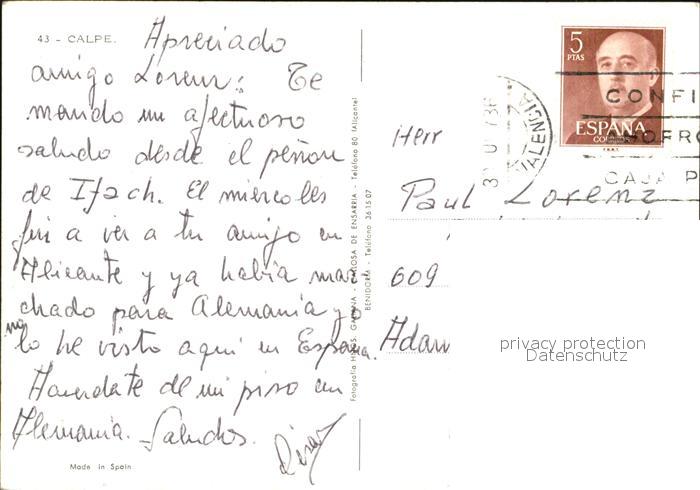 43 - CALPE.
Apreciado
amigo Lorenz: Te
mando un afectuoso
saludo desde el peñon
de Ifach. El miercoles
fui a ver a tu amigo en
Alicante y ya había mar-
chado para Alemania yo
no lo he visto aqui en España.
Acuerdate de mi piso en
Alemania. Saludos.
Made in Spain
Fotografía HNOS. GALIANA - CALLOSA DE ENSARRIA - Teléfono 80 (Alicante)
BENIDORM - Teléfono 36 15 07
5
PTAS
ESPAÑA
CORREOS
F.N.M.T.
VALENCIA
CONFI
CAJA P
Herr
Paul Lorenz
609
Adam
privacy protection
Datenschutz